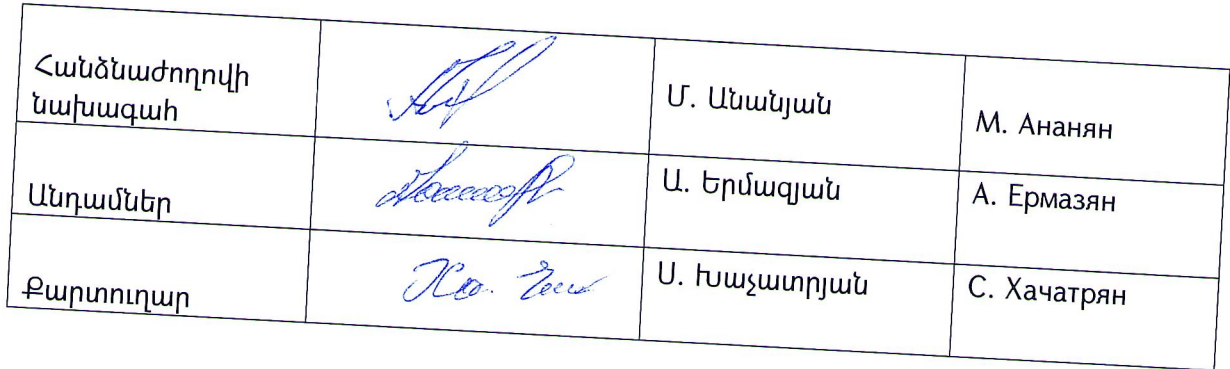 Հանձնաժողովի
նախագահ
Մ. Անանյան
М. Ананян
Անդամներ
Ա. Երմազյան
А. Ермазян
Քարտուղար
Ս. Խաչատրյան
С. Хачатрян